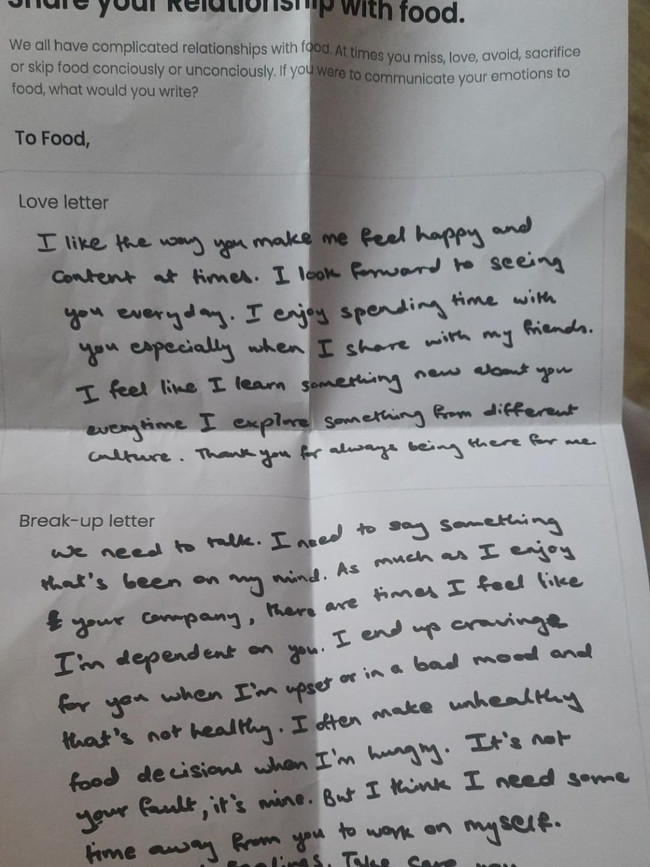 Share your Relationship with food.
We all have complicated relationships with food. At times you miss, love, avoid, sacrifice
or skip food conciously or unconciously. If you were to communicate your emotions to
food, what would you write?
To Food,
Love letter
I like the way you make me feel happy and
content at times. I look forward to seeing
you everyday. I enjoy spending time with
you especially when I share with my friends.
I feel like I learn something new about you
everytime I explore something from different
culture. Thank you for always being there for me.
Break-up letter
We need to talk. I need to say something
that's been on my mind. As much as I enjoy
your company, there are times I feel like
I'm dependent on you. I end up cravings
for you when I'm upset or in a bad mood and
that's not healthy. I often make unhealthy
food decisions when I'm hungry. It's not
your fault, it's mine. But I think I need some
time away from you to work on myself.
feelings. Take care you